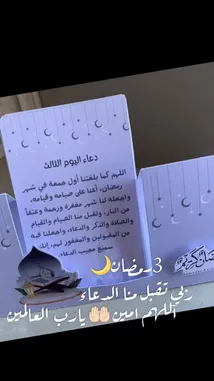 دعاء اليوم الثالث
اللهم كما بلغتنا أول جمعة في شهر
رمضان، أعنا على صيامه وقيامه،
واجعله لنا شهر مغفرة ورحمة وعتقاً
من النار، وتقبل منا الصيام والقيام
والصلاة والذكر والدعاء، واجعلنا فيه
من المقبولين والمغفور لهم، إنك
سميع مجيب الدعاء.
رمضان كريم
3رمضان🌙
ربي تقبل منا الدعاء
اللهم امين 🤲🏻 يارب العالمين